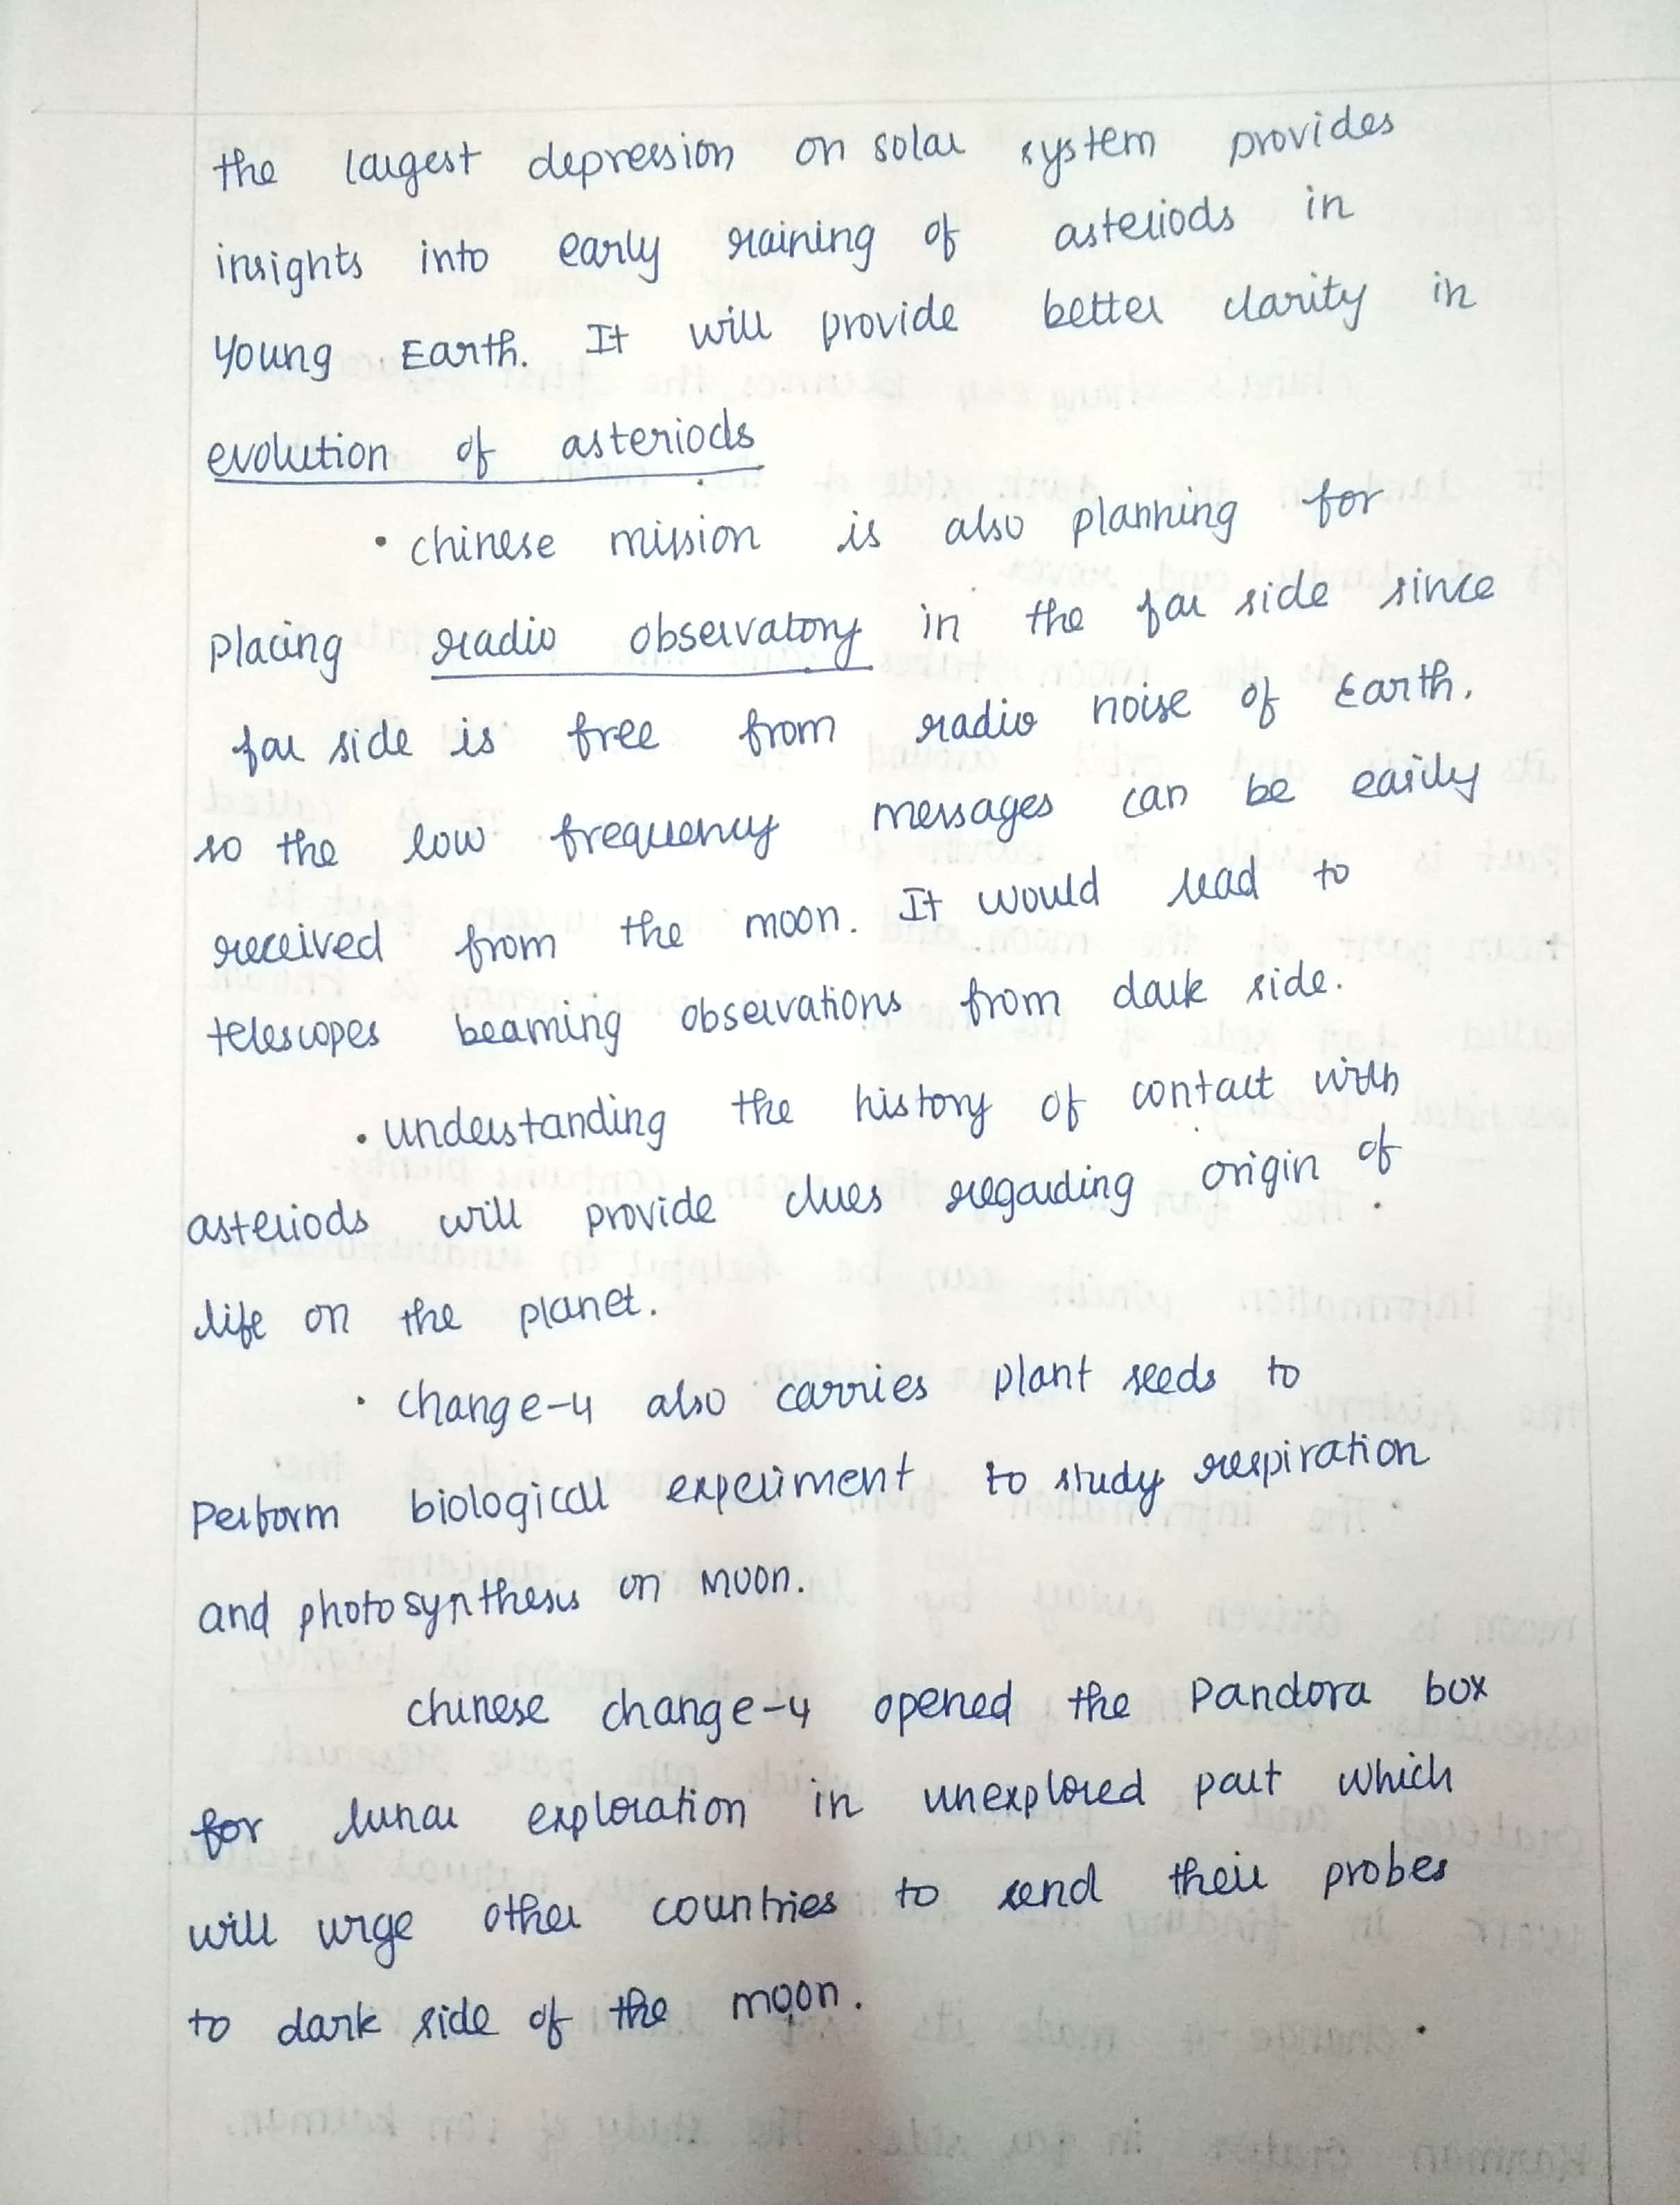 the largest depression on solar system provides
insights into early raining of asteriods in
Young Earth. It will provide better clarity in
evolution of asteriods
• chinese mission is also planning for
placing radio observatory in the far side since
far side is free from radio noise of Earth.
so the low frequency messages can be easily
received from the moon. It would lead to
telescopes beaming observations from dark side.
• understanding the history of contact with
asteriods will provide clues regarding origin of
life on the planet.
• change-4 also carries plant seeds to
perform biological experiment to study respiration
and photosynthesis on Moon.
chinese change-4 opened the Pandora box
for lunar exploration in unexplored part which
will urge other countries to send their probes
to dark side of the moon.